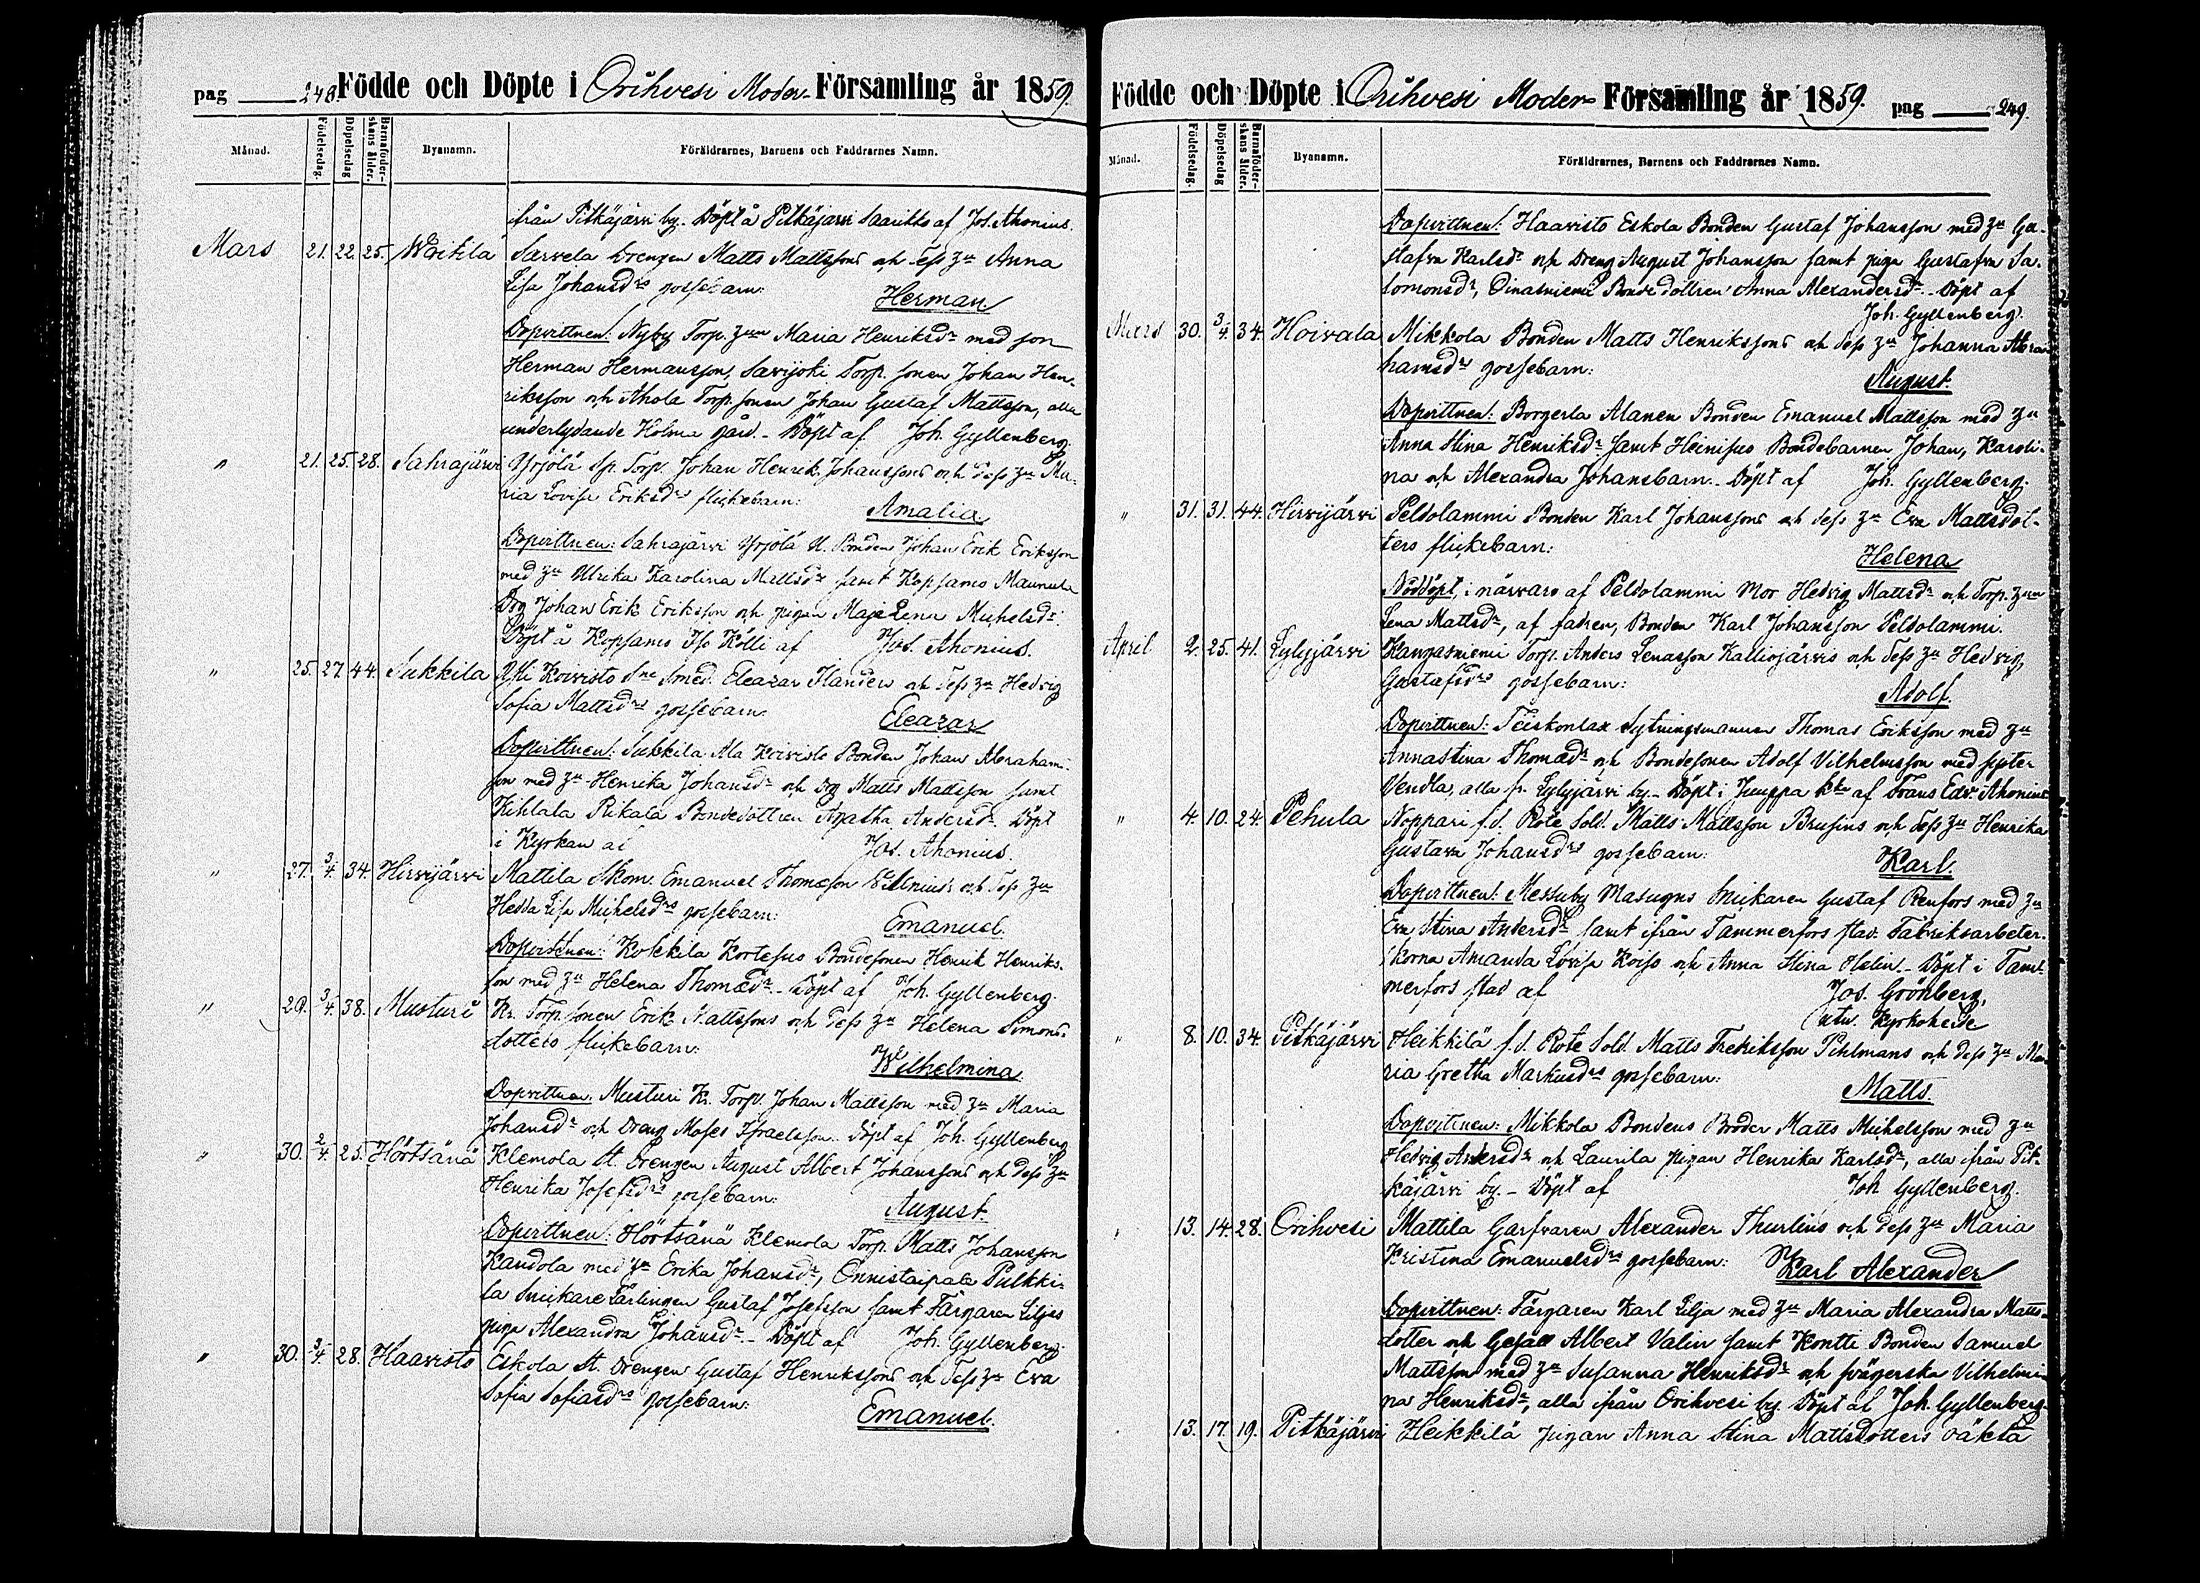 pag 248. Födde och Döpte i Orihvesi Moder- Församling år 1859.
Månad. Födelsedag. Döpelsedag Barnaföderskans ålder. Byanamn. Föräldrarnes, Barnens och Faddrarnes Namn.
ifrån Pitkäjärvi by. Döpt å Pitkäjärvi Saarikko af Jos. Ahonius.
Mars 21. 22. 25. Sarvela Drengen Matts Mattssons och dess hu Anna
Lisa Johansdrs gossebarn: Herman
Dopvittnen: Nyby Torp. hun Maria Henriksdr med son
Herman Hermansson, Savijoki Torp. sonen Johan Hen-
riksson och Ahola Torp. sonen Johan Gustaf Mattsson, alla
underlydande Holma gård. - Döpt af Joh. Gyllenberg.
" 21. 25. 28. Sahrajärvi Yrjölä Torp. Johan Henrik Johanssons och dess hu Ma-
ria Lovisa Eriksdrs flickebarn: Amalia
Dopvittnen: Sahrajärvi Yrjölä Bonden Johan Erik Eriksson
med hu Ulrika Karolina Mattsdr samt Kopsamo Maunula
Drg Johan Erik Eriksson och pigan Maja Lena Michelsdr.
Döpt å Kopsamo Kölli af Jos. Ahonius.
" 25. 27. 44. Sukkila Yli Koivisto Smed. Eleazar Flander och dess hu Hedvig
Sofia Mattsdrs gossebarn: Eleazar
Dopvittnen: Sukkila Ala Koivisto Bonden Johan Abraham-
son med hu Henrika Johansdr och Drg Matts Mattsson samt
Kihlala Rikala Bondedottren Agatha Andersdr. Döpt
i Kyrkan af Jos. Ahonius.
" 27. 3/4. 34. Hirvijärvi Mattila Skom. Emanuel Thomasson och dess hu
Hedda Lisa Michelsdrs gossebarn: Emanuel.
Dopvittnen: Kokkila Kortesus Bondesonen Henrik Henriks-
son med hu Helena Thomædr. - Döpt af Joh. Gyllenberg.
" 29. 3/4. 38. Musturi Kr. Torp. sonen Erik Mattssons och dess hu Helena Simons-
dotters flickebarn: Wilhelmina
Dopvittnen: Musturi Kr. Torp. Johan Mattsson med hu Maria
Johansdr och Dreng Moses Israelsson. Döpt af Joh. Gyllenberg
" 30. 2/4. 25. Hörtsänä Klemola St. Drengen August Albert Johanssons och dess hu
Henrika Josefsdrs gossebarn: August.
Dopvittnen: Hörtsänä Klemola Torp. Matts Johansson
Kandola med hu Erika Johansdr, Onnistaipale Pulkki-
la Snickare Lärlingen Gustaf Josefsson samt Färgaren Liljas
piga Alexandra Johansdr. - Döpt af Joh. Gyllenberg.
" 30. 3/4. 28. Haavisto Eskola St. Drengen Gustaf Henrikssons och dess hu Eva
Sofia Sofiasdrs gossebarn: Emanuel.
Födde och Döpte i Orihvesi Moder- Församling år 1859. pag 249.
Månad. Födelsedag. Döpelsedag Barnaföderskans ålder. Byanamn. Föräldrarnes, Barnens och Faddrarnes Namn.
Dopvittnen: Haavisto Eskola Bonden Gustaf Johansson med hu Gu-
stafva Karlsdr och Dreng August Johansson samt pigan Gustafva Sa-
lomonsdr, Oinasniemi Bondedottren Anna Alexandersdr. - Döpt af
Joh. Gyllenberg.
Mars 30. 3/4. 34. Hoivala Mikkola Bonden Matts Henrikssons och dess hu Johanna Abra-
hamsdrs gossebarn: August.
Dopvittnen: Alanen Bonden Emanuel Mattsson med hu
Anna Stina Henriksdr samt Heinisus Bondebarnen Johan, Karoli-
na och Alexandra Johansbarn. Döpt af Joh. Gyllenberg.
" 31. 31. 44. Hirvijärvi Peldolammi Bonden Karl Johanssons och dess hu Eva Mattsdot-
ters flickebarn: Helena
Nöddöpt, i närvaro af Peldolammi Mor Hedvig Mattsdr och Torp. hun
Lena Mattsdr, af fadren, Bonden Karl Johansson Peldolammi.
April 2. 25. 41. Lylyjärvi Kangasniemi Torp. Anders Lenasson Kalliojärvis och dess hu Hedvig
Gustafsdrs gossebarn: Adolf.
Dopvittnen: Teiskonlax Sytningsmannen Thomas Eriksson med hu
Annastina Thomædr och Bondesonen Adolf Vilhelmsson med syster
Vendla, alla fr. Lylyjärvi by. - Döpt i Juuppa af Frans Edv. Ahonius
" 4. 10. 24. Pehula Noppari f.d. Rote Sold. Matts Mattsson Brusius och dess hu Henrika
Gustava Johansdrs gossebarn: Karl.
Dopvittnen: Messuby Masugns Snickaren Gustaf Renfors med hu
Eva Stina Andersdr samt ifrån Tammerfors stad Fabriksarbeter-
skorna Amanda Lovisa Koiso och Anna Stina Helin. - Döpt i Tam-
merfors stad af Jos. Grönberg,
utw. Kyrkoherde
" 8. 10. 34. Pitkäjärvi Heikkilä f.d. Rote Sold. Matts Fredriksson Pihlmans och dess hu Ma-
ria Gretha Markusdrs gossebarn: Matts.
Dopvittnen: Mikkola Bondens Broder Matts Michelsson med hu
Hedvig Andersdr och Laurila pigan Henrika Karlsdr, alla ifrån Pit-
käjärvi by. - Döpt af Joh. Gyllenberg.
" 13. 14. 28. Orihvesi Mattila Garfvaren Alexander Thurlins och dess hu Maria
Kristina Emanuelsdrs gossebarn: Karl Alexander
Dopvittnen: Färgaren Karl Lilja med hu Maria Alexandra Matts-
dotter och Gesäll Albert Valin samt Kontti Bonden Samuel
Mattsson med hu Susanna Henriksdr och svägerska Vilhelmi-
na Henriksdr, alla ifrån Orihvesi by. Döpt af Joh. Gyllenberg.
13. 17. 19. Pitkäjärvi Heikkilä pigan Anna Stina Mattsdotters oäkta